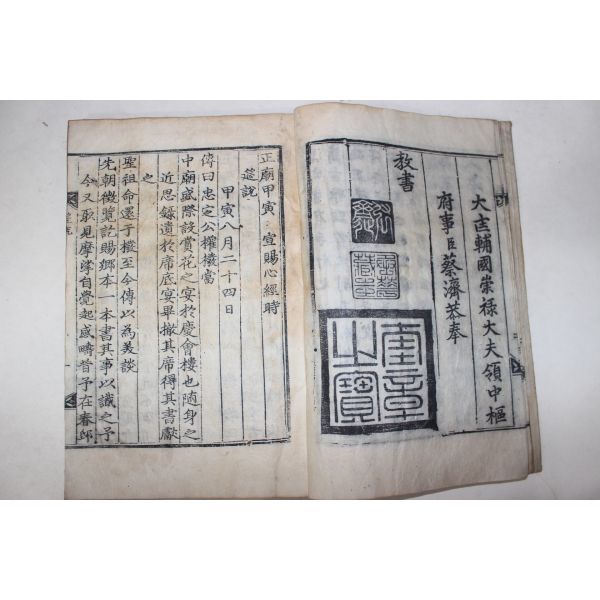 大匡輔國崇祿大夫領中樞
府事臣蔡濟恭奉
教書
奎章
之寶
正廟甲寅 宣賜心經時
筵說
甲寅八月二十四日
傳曰忠定公權橃當
中廟盛際設賞花之宴於慶會樓也隨身之
近思錄遺於席底宴畢撤其席得其書獻
之
聖祖命還于橃至今傳以為美談
先朝徵覽記賜鄉本一本書其事以識之予
今又承見摩挲自覺起感疇昔予在春邸